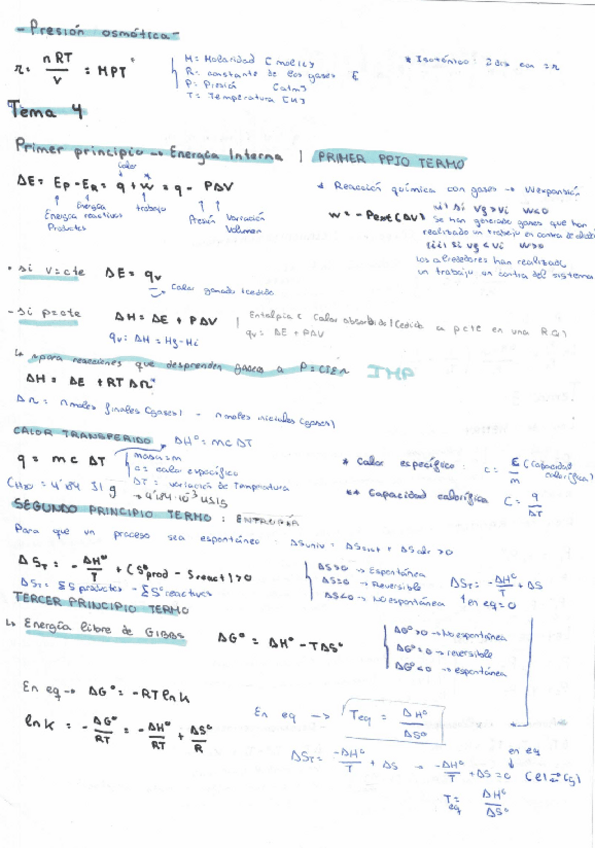 - Presión osmótica -
π = nRT / V = MPT
M = Molaridad (mol/L)
R = constante de los gases
P = Presión (atm)
T = Temperatura (K)
* Isotónico: 2 dis con = π
Tema 4
Primer principio → Energía Interna | PRIMER PPIO TERMO
Calor
ΔE = Ep - ER = q + w = q - PΔV
Energía Productos
Energía reactivos
trabajo
Presión
Variación Volumen
* Reacción química con gases → Wexpansión
w = - Pext (ΔV)
ii) Si Vf > Vi w<0
Se han generado gases que han
realizado un trabajo en contra de
iii) si Vf < Vi w>0
los alrededores han realizado
un trabajo en contra del sistema
• Si V=cte ΔE = qv
→ Calor ganado / cedido
- Si p=cte ΔH = ΔE + PΔV | Entalpía ( Calor absorbido / cedido a p cte en una RQ)
qv: ΔH = Hf - Hi
qv = ΔE + PΔV
↳ para reacciones que desprenden gases a P=CTE IMP
ΔH = ΔE + RTΔn
Δn = nmoles finales (gases) - nmoles iniciales (gases)
CALOR TRANSFERIDO → ΔH° = mcΔT
q = mcΔT
masa = m
c = calor específico
ΔT = variación de Temperatura
CH2O = 4'84 J/g
→ 4'184·10⁻³ kJ/g
* Calor específico: c = C/m (Capacidad calorífica)
** Capacidad calorífica C = q/ΔT
SEGUNDO PRINCIPIO TERMO: ENTROPÍA
Para que un proceso sea espontáneo → ΔSuniv = ΔSsist + ΔSalr > 0
ΔST = - ΔH°/T + (S°prod - Sreact) > 0
ΔS>0 → Espontánea
ΔS=0 → Reversible
ΔS<0 → NO espontánea
ΔST = - ΔH°/T + ΔS
↑ en eq = 0
ΔST = ΣS productos - ΣS° reactivos
TERCER PRINCIPIO TERMO
↳ Energía libre de GIBBS ΔG° = ΔH° - TΔS°
ΔG°>0 → No espontánea
ΔG°=0 → reversible
ΔG°<0 → espontánea
En eq → ΔG° = -RT ln k
ln k = - ΔG°/RT = - ΔH°/RT + ΔS°/R
En eq → Teq = ΔH°/ΔS°
ΔST = -ΔH°/T + ΔS → -ΔH°/T + ΔS = 0
en eq
Teq = ΔH°/ΔS°